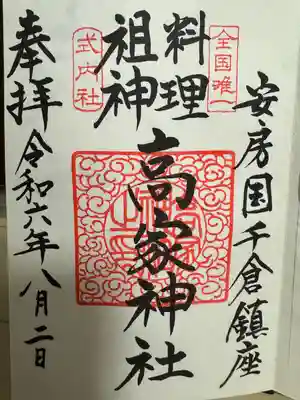 安房国千倉鎮座
全国唯一
料理
祖神
高家神社
式内社
奉拝
令和六年八月二日